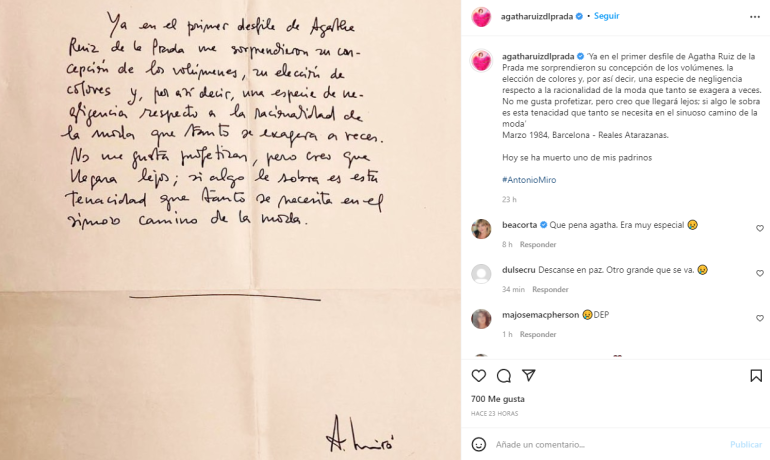 Ya en el primer desfile de Agatha
Ruiz de la Prada me sorprendieron su con-
cepción de los volúmenes, su elección de
colores y, por así decir, una especie de ne-
gligencia respecto a la racionalidad de
la moda que tanto se exagera a veces.
No me gusta profetizar, pero creo que
llegara lejos; si algo le sobra es esta
tenacidad que tanto se necesita en el
sinuoso camino de la moda.
A. Miró
agatharuizdlprada • Seguir
agatharuizdlprada 'Ya en el primer desfile de Agatha Ruiz de la
Prada me sorprendieron su concepción de los volúmenes, la
elección de colores y, por así decir, una especie de negligencia
respecto a la racionalidad de la moda que tanto se exagera a veces.
No me gusta profetizar, pero creo que llegará lejos; si algo le sobra
es esa tenacidad que tanto se necesita en el sinuoso camino de la
moda'
Marzo 1984, Barcelona - Reales Atarazanas.
Hoy se ha muerto uno de mis padrinos
#AntonioMiro
23 h
beacorta Que pena agatha. Era muy especial 😢
8 h Responder
dulsecru Descanse en paz. Otro grande que se va. 😢
34 min Responder
majosemacpherson 😢DEP
1 h Responder
700 Me gusta
HACE 23 HORAS
Añade un comentario...
Publicar